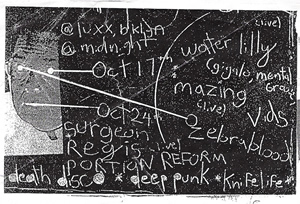 @ luxx, bklyn
@ midnight
Oct 17th
water lilly (live)
(gigolo, mental groove)
mazing (live)
vids
Oct 24th
Zebrablood
surgeon
Regis (live)
PORTION REFORM
death disco * deep punk * knifelife *